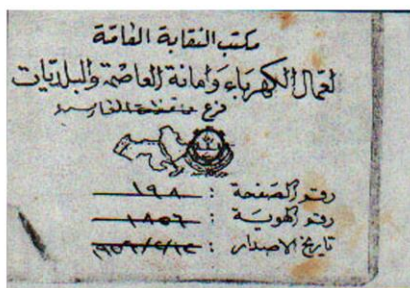 مكتب النقابة العامة
لعمال الكهرباء وأمانة العاصمة والبلديات
فرع
رقم الصفحة : ١٩٨
رقم الهوية : ١٨٥٦
تاريخ الاصدار :